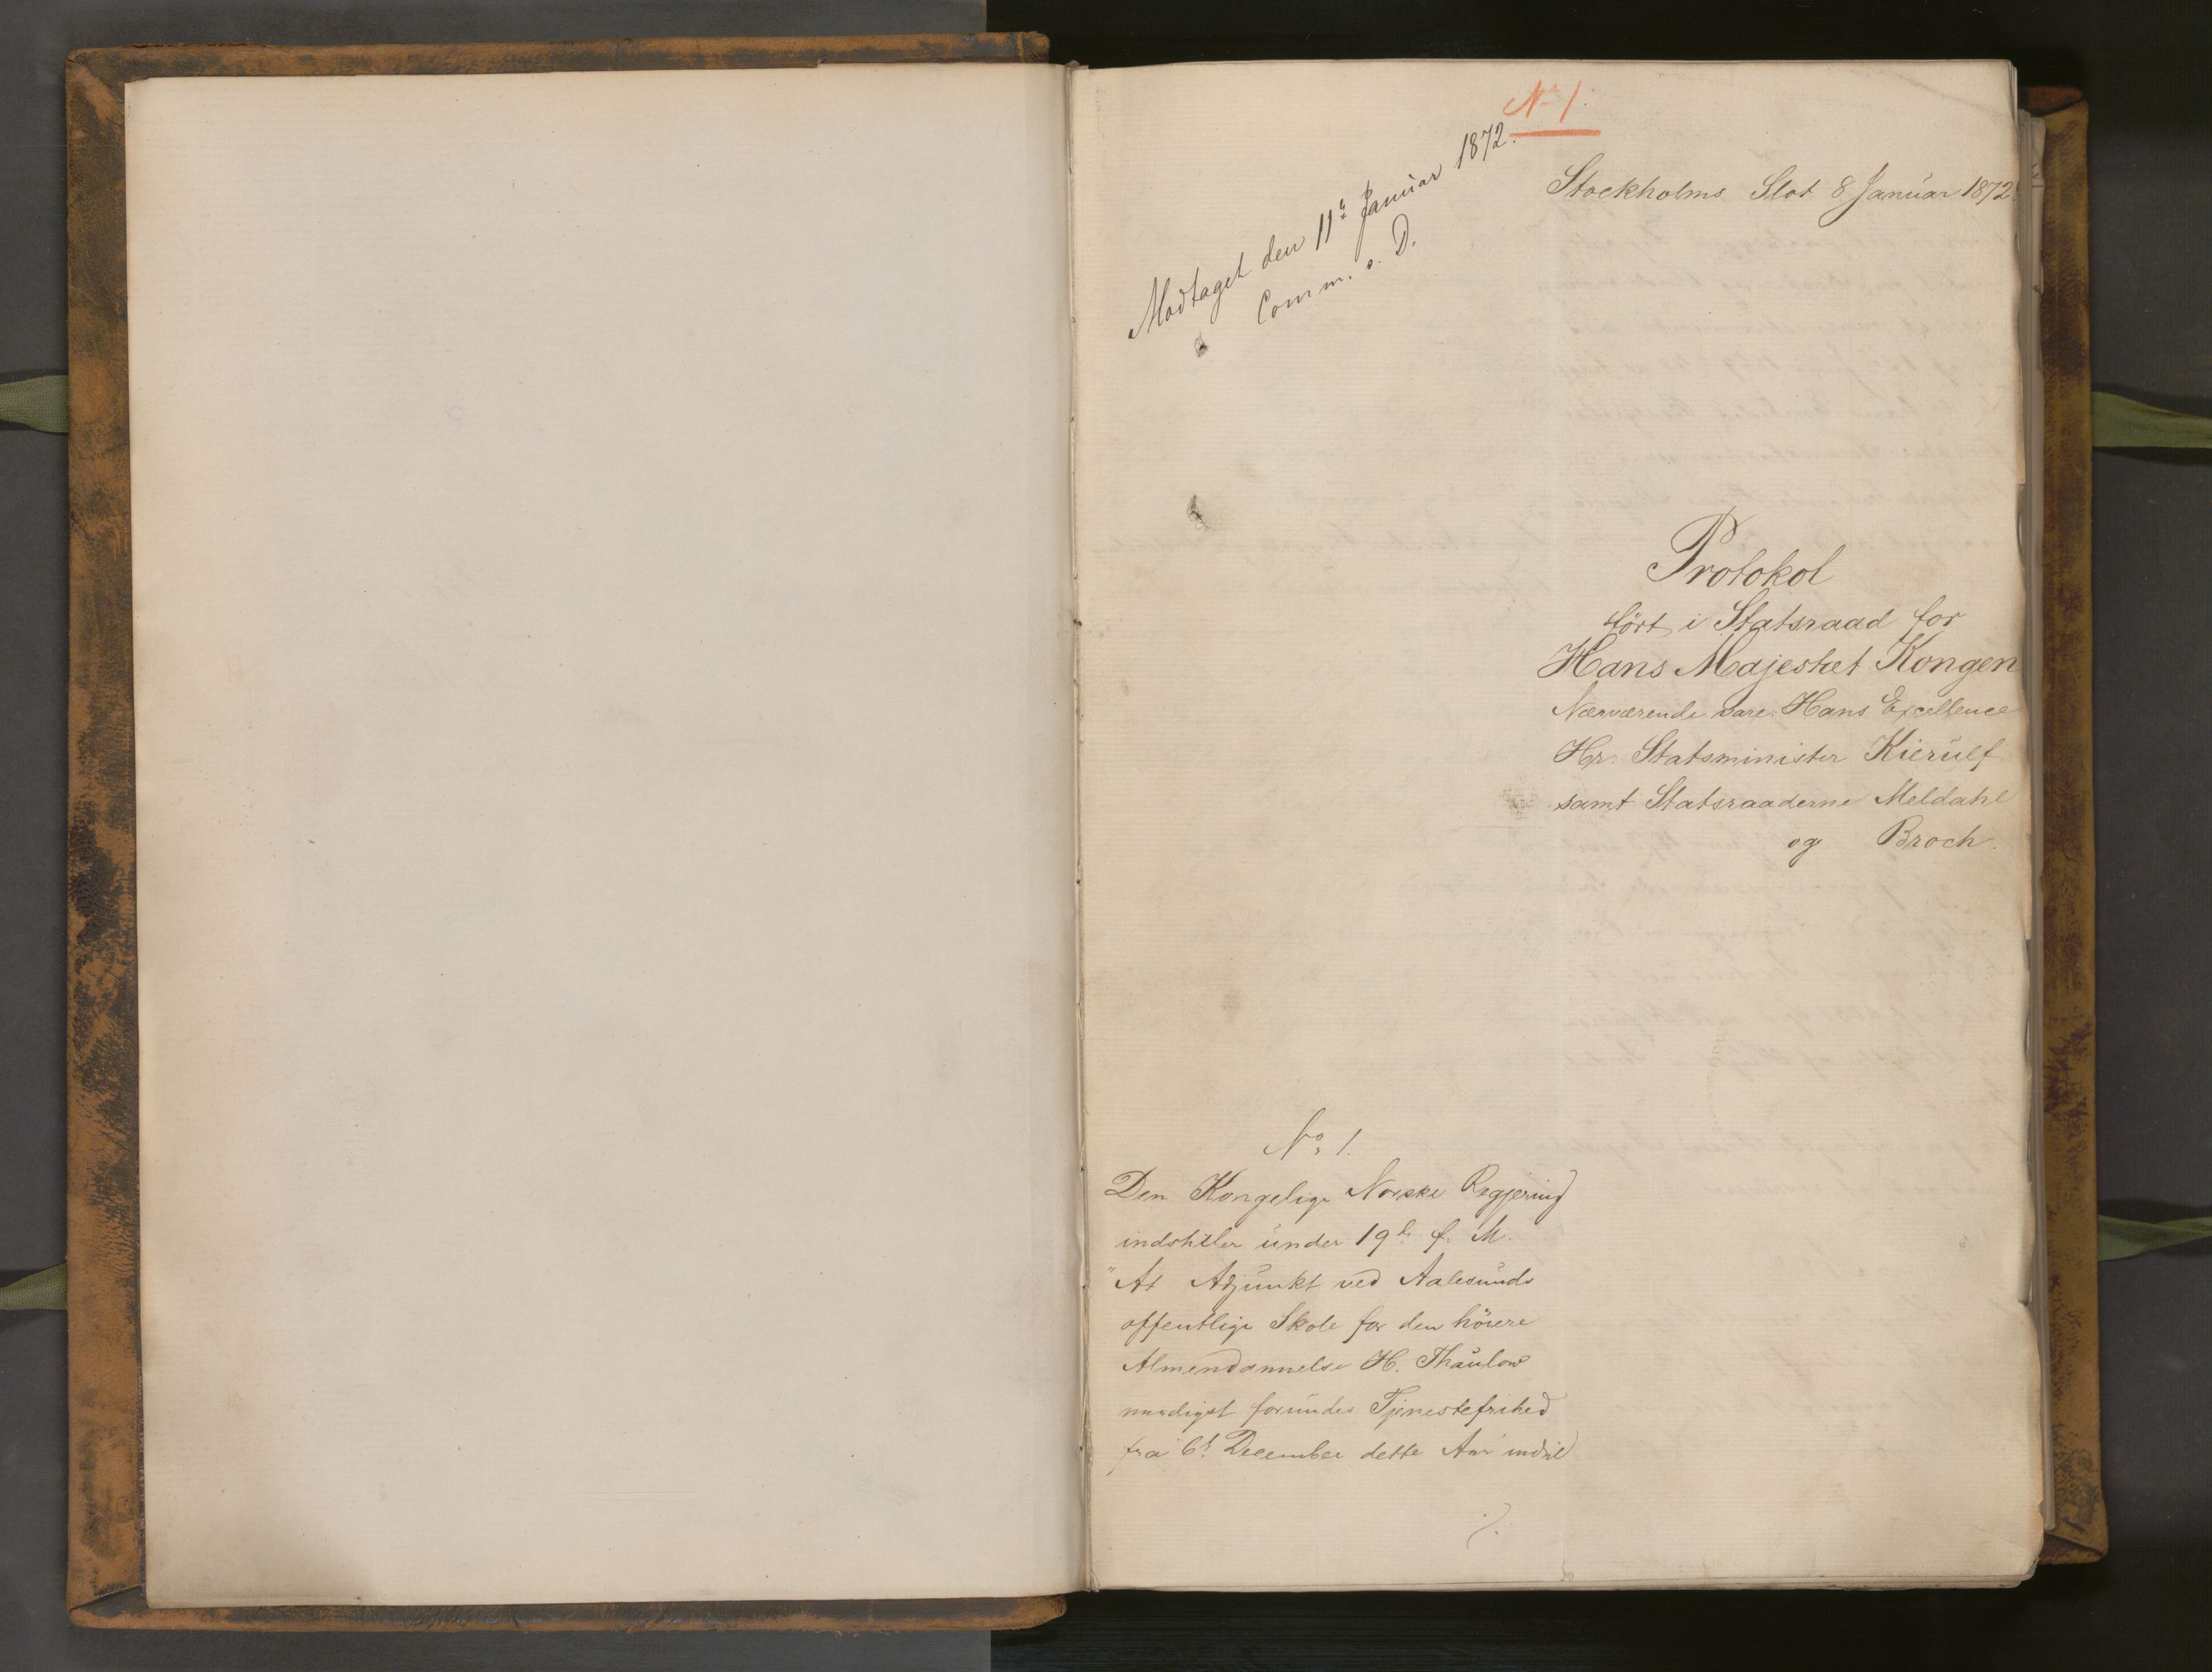 No 1.
Modtaget den 11te Januar 1872.
Comm. s. D.
Stockholms Slot 8 Januar 1872.
Protokol
ført i Statsraad for
Hans Majestæt Kongen
Nærværende vare: Hans Excellence
Hr. Statsminister Kierulf
samt Statsraaderne Meldahl
og Broch.
No 1.
Den Kongelige Norske Regjering
indstiller under 19de f. M.
"At Adjunkt ved Aalesunds
offentlige Skole for den höiere
Almendannelse H. Thaulow
naadigst forundes Tjenestefrihed
fra 6te December dette Aar indtil
./.